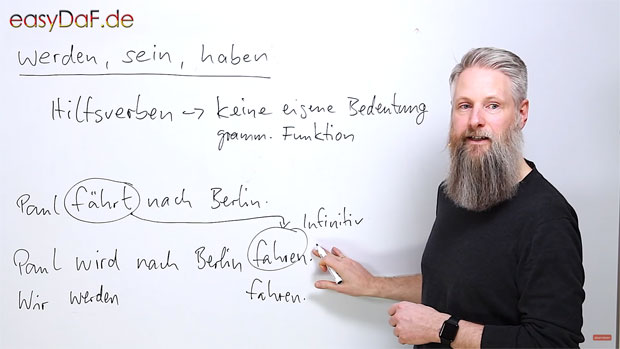 easyDaF.de
werden, sein, haben
Hilfsverben → keine eigene Bedeutung
gramm. Funktion
Paul fährt nach Berlin.
Infinitiv
Paul wird nach Berlin fahren.
Wir werden fahren.